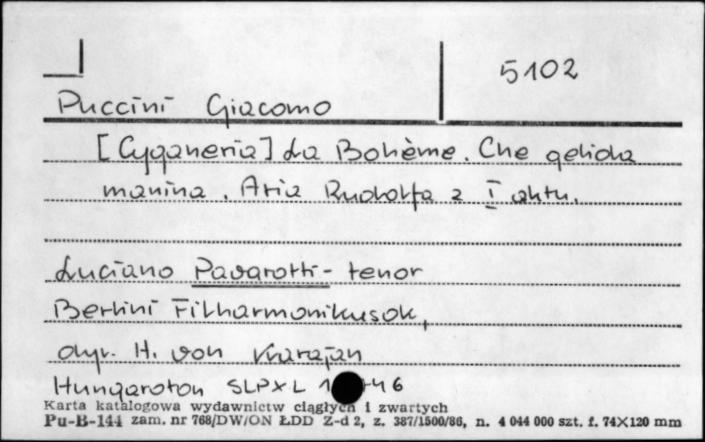 5102
Puccini Giacomo
[Cyganeria] La Bohème. Che gelida
manina. Aria Rudolfa z I aktu.
Luciano Pavarotti - tenor
Berlini Filharmonikusok,
dyr. H. von Karajan
Hungaroton SLPXL
Karta katalogowa wydawnictw ciągłych i zwartych
Pu-B-144 zam. nr 768/DW/ON ŁDD Z-d 2, z. 387/1500/86, n. 4 044 000 szt. f. 74X120 mm